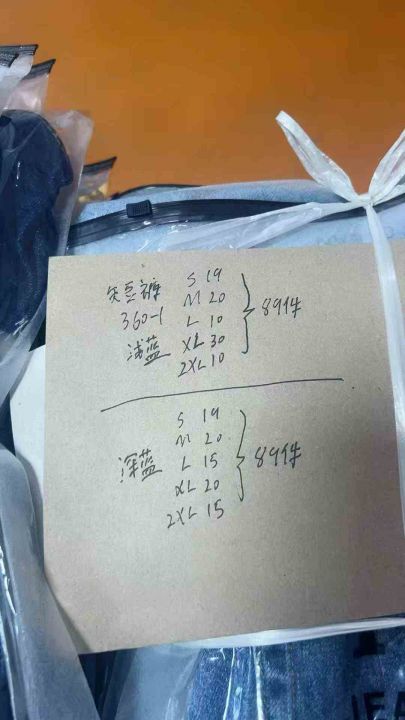 S 19
短裤 M 20
360-1 L 10 89件
浅蓝 XL 30
2XL 10
S 19
M 20
深蓝 L 15 89件
XL 20
2XL 15